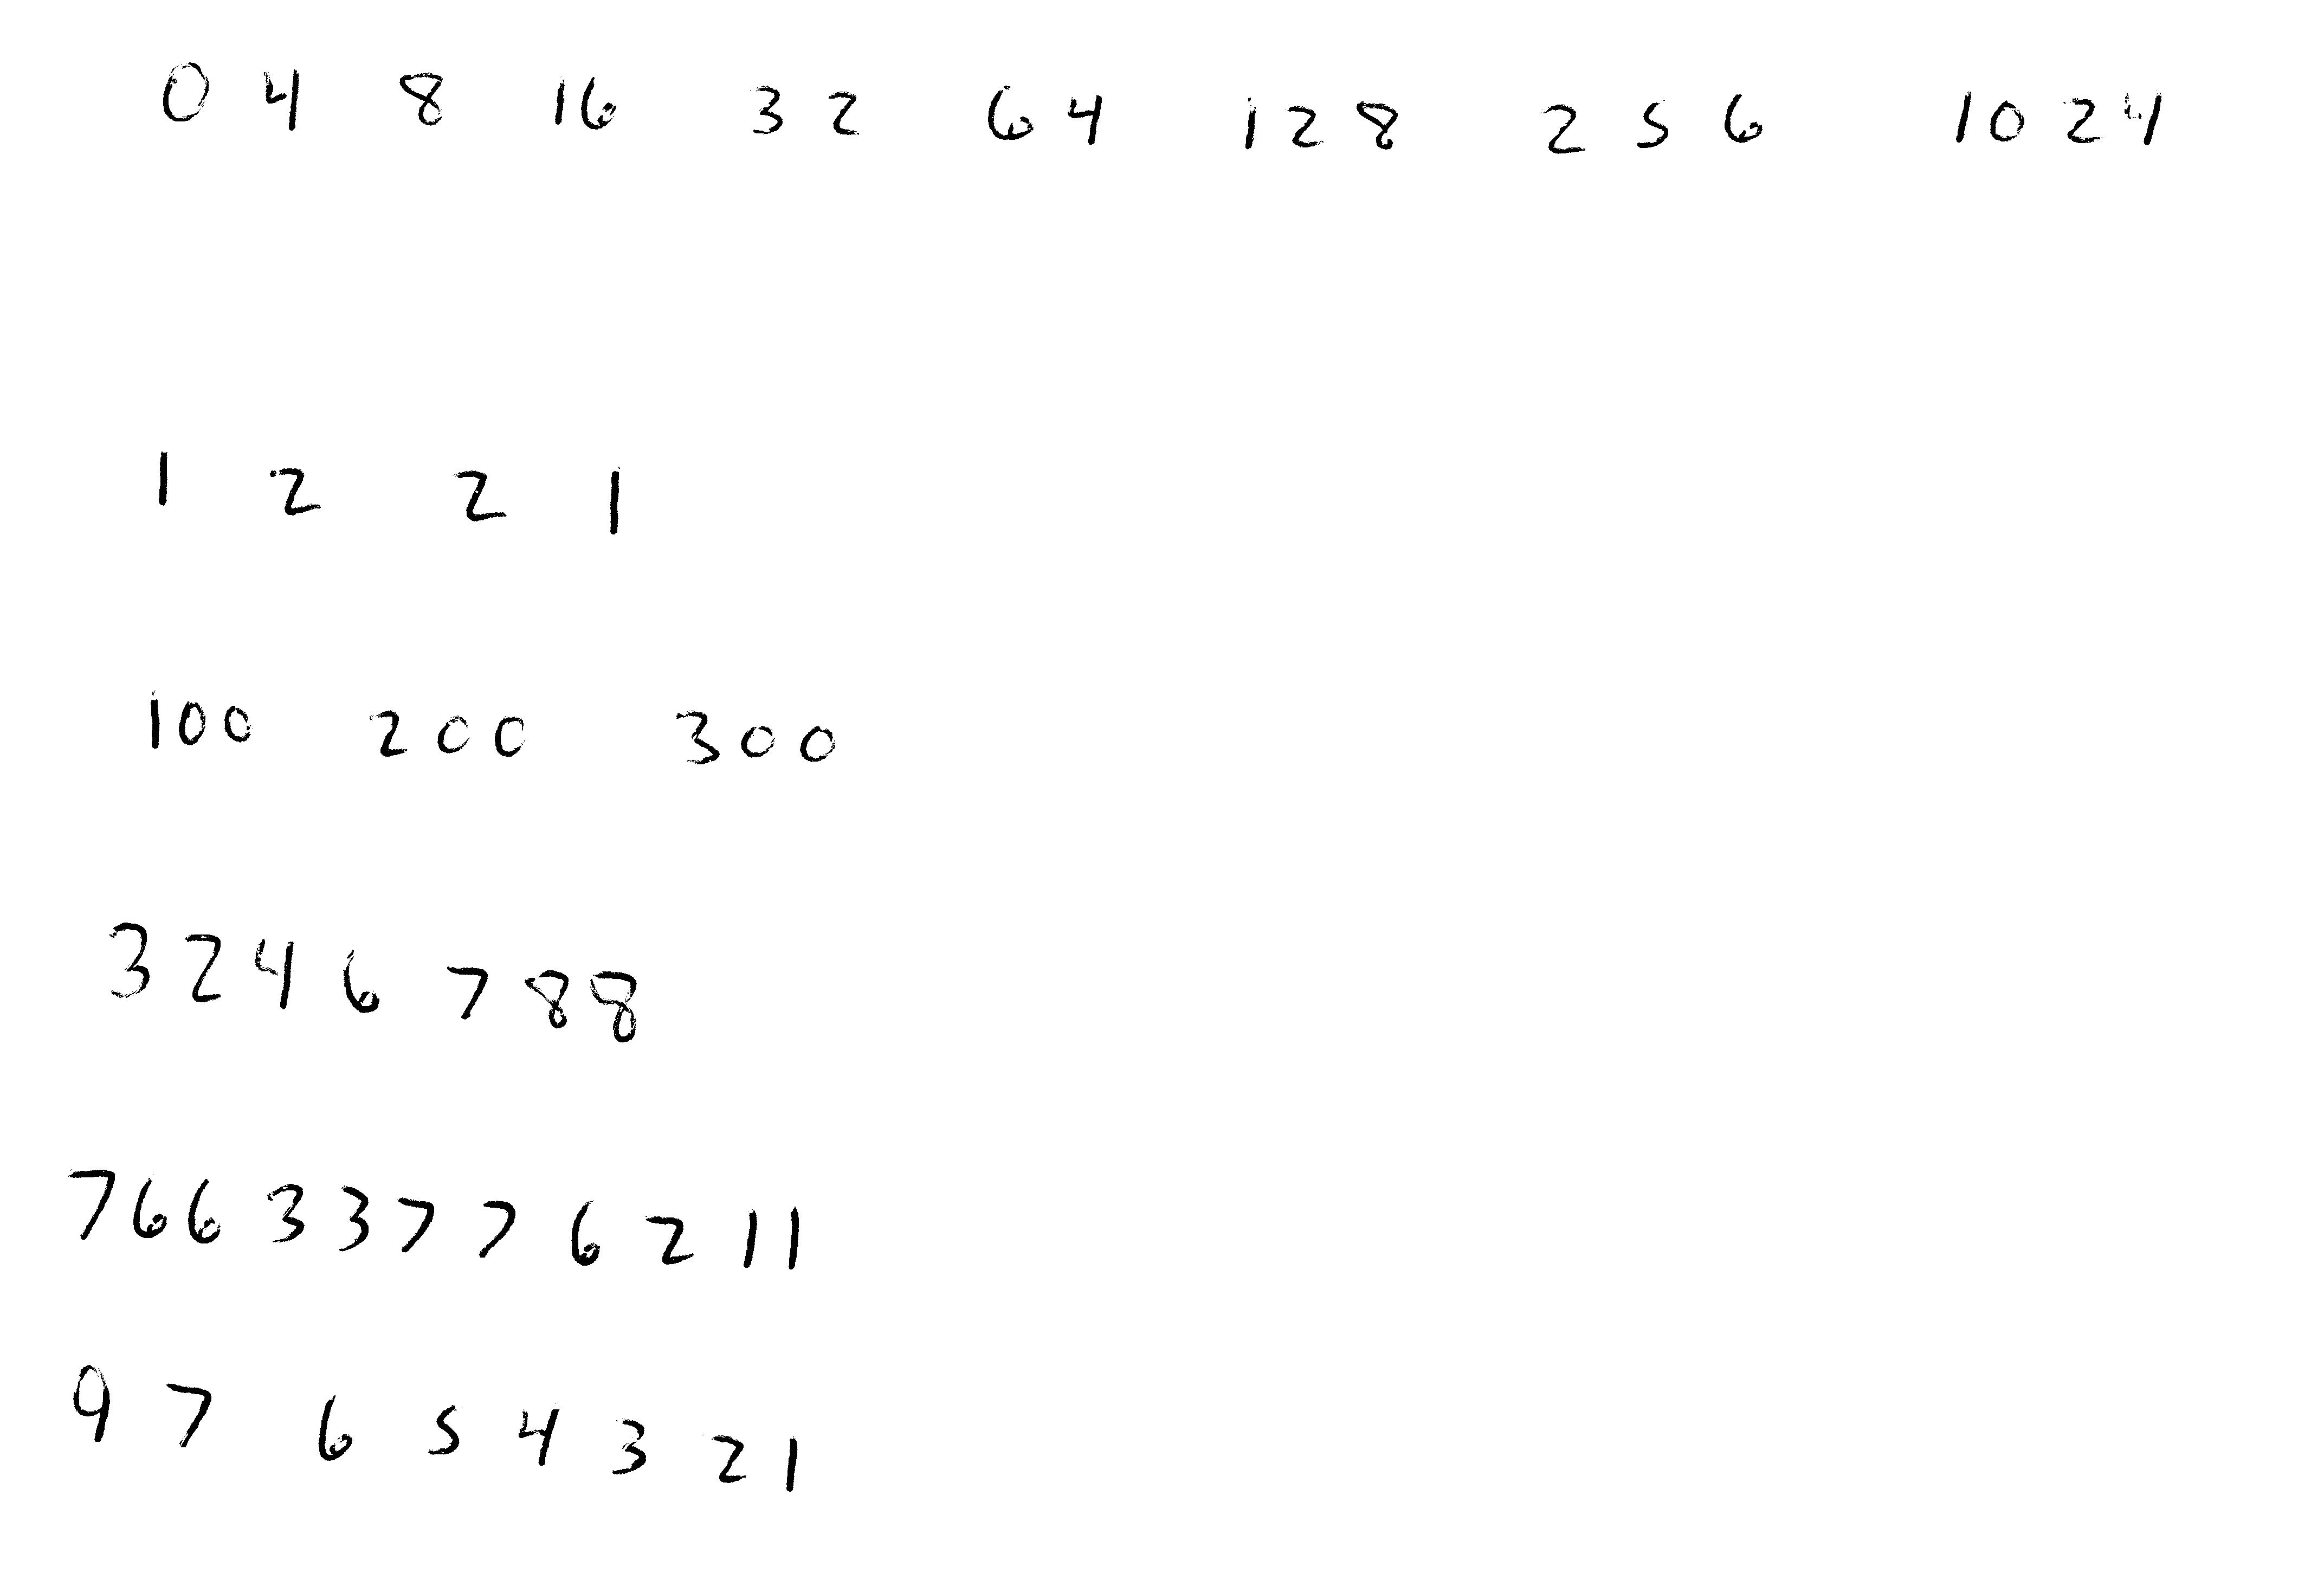 0 4 8 16 32 64 128 256 1024
1 2 2 1
100 200 300
3 2 4 6 7 8 8
7 6 6 3 3 7 7 6 2 1 1
9 7 6 5 4 3 2 1